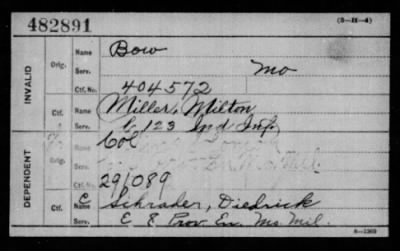 482891 (3-H-4)
INVALID
Orig. Name Bow
Serv. Mo
Ctf. No. 404572
Ctf. Name Miller, Milton
Serv. 123 Ind Inf.
DEPENDENT
Orig. Name Col
Serv.
Ctf. No. 291089
Ctf. C Name Schrader, Diedrick
Serv. E 8 Prov. En. Mo. Mil.